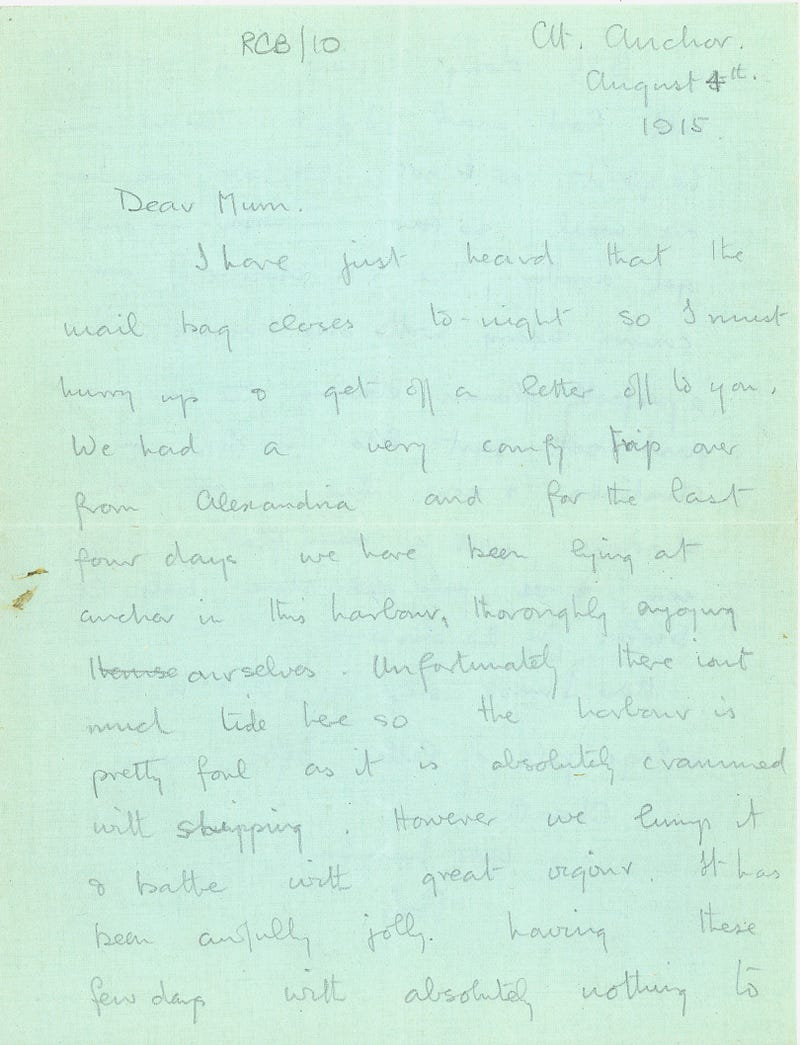 RCB/10
At. Anchor.
August 4th.
1915.
Dear Mum.
I have just heard that the
mail bag closes to-night so I must
hurry up & get off a letter off to you.
We had a very comfy trip over
from Alexandria and for the last
four days we have been lying at
anchor in this harbour, thoroughly enjoying
themse ourselves. Unfortunately there isnt
much tide here so the harbour is
pretty foul as it is absolutely crammed
with shipping. However we lump it
& bathe with great vigour. It has
been awfully jolly. having these
few days with absolutely nothing to